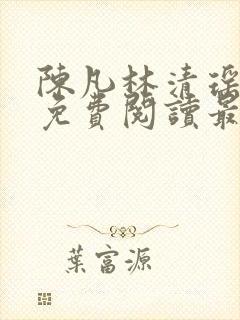 陳凡林清瑶
免費閱讀最
葉富源